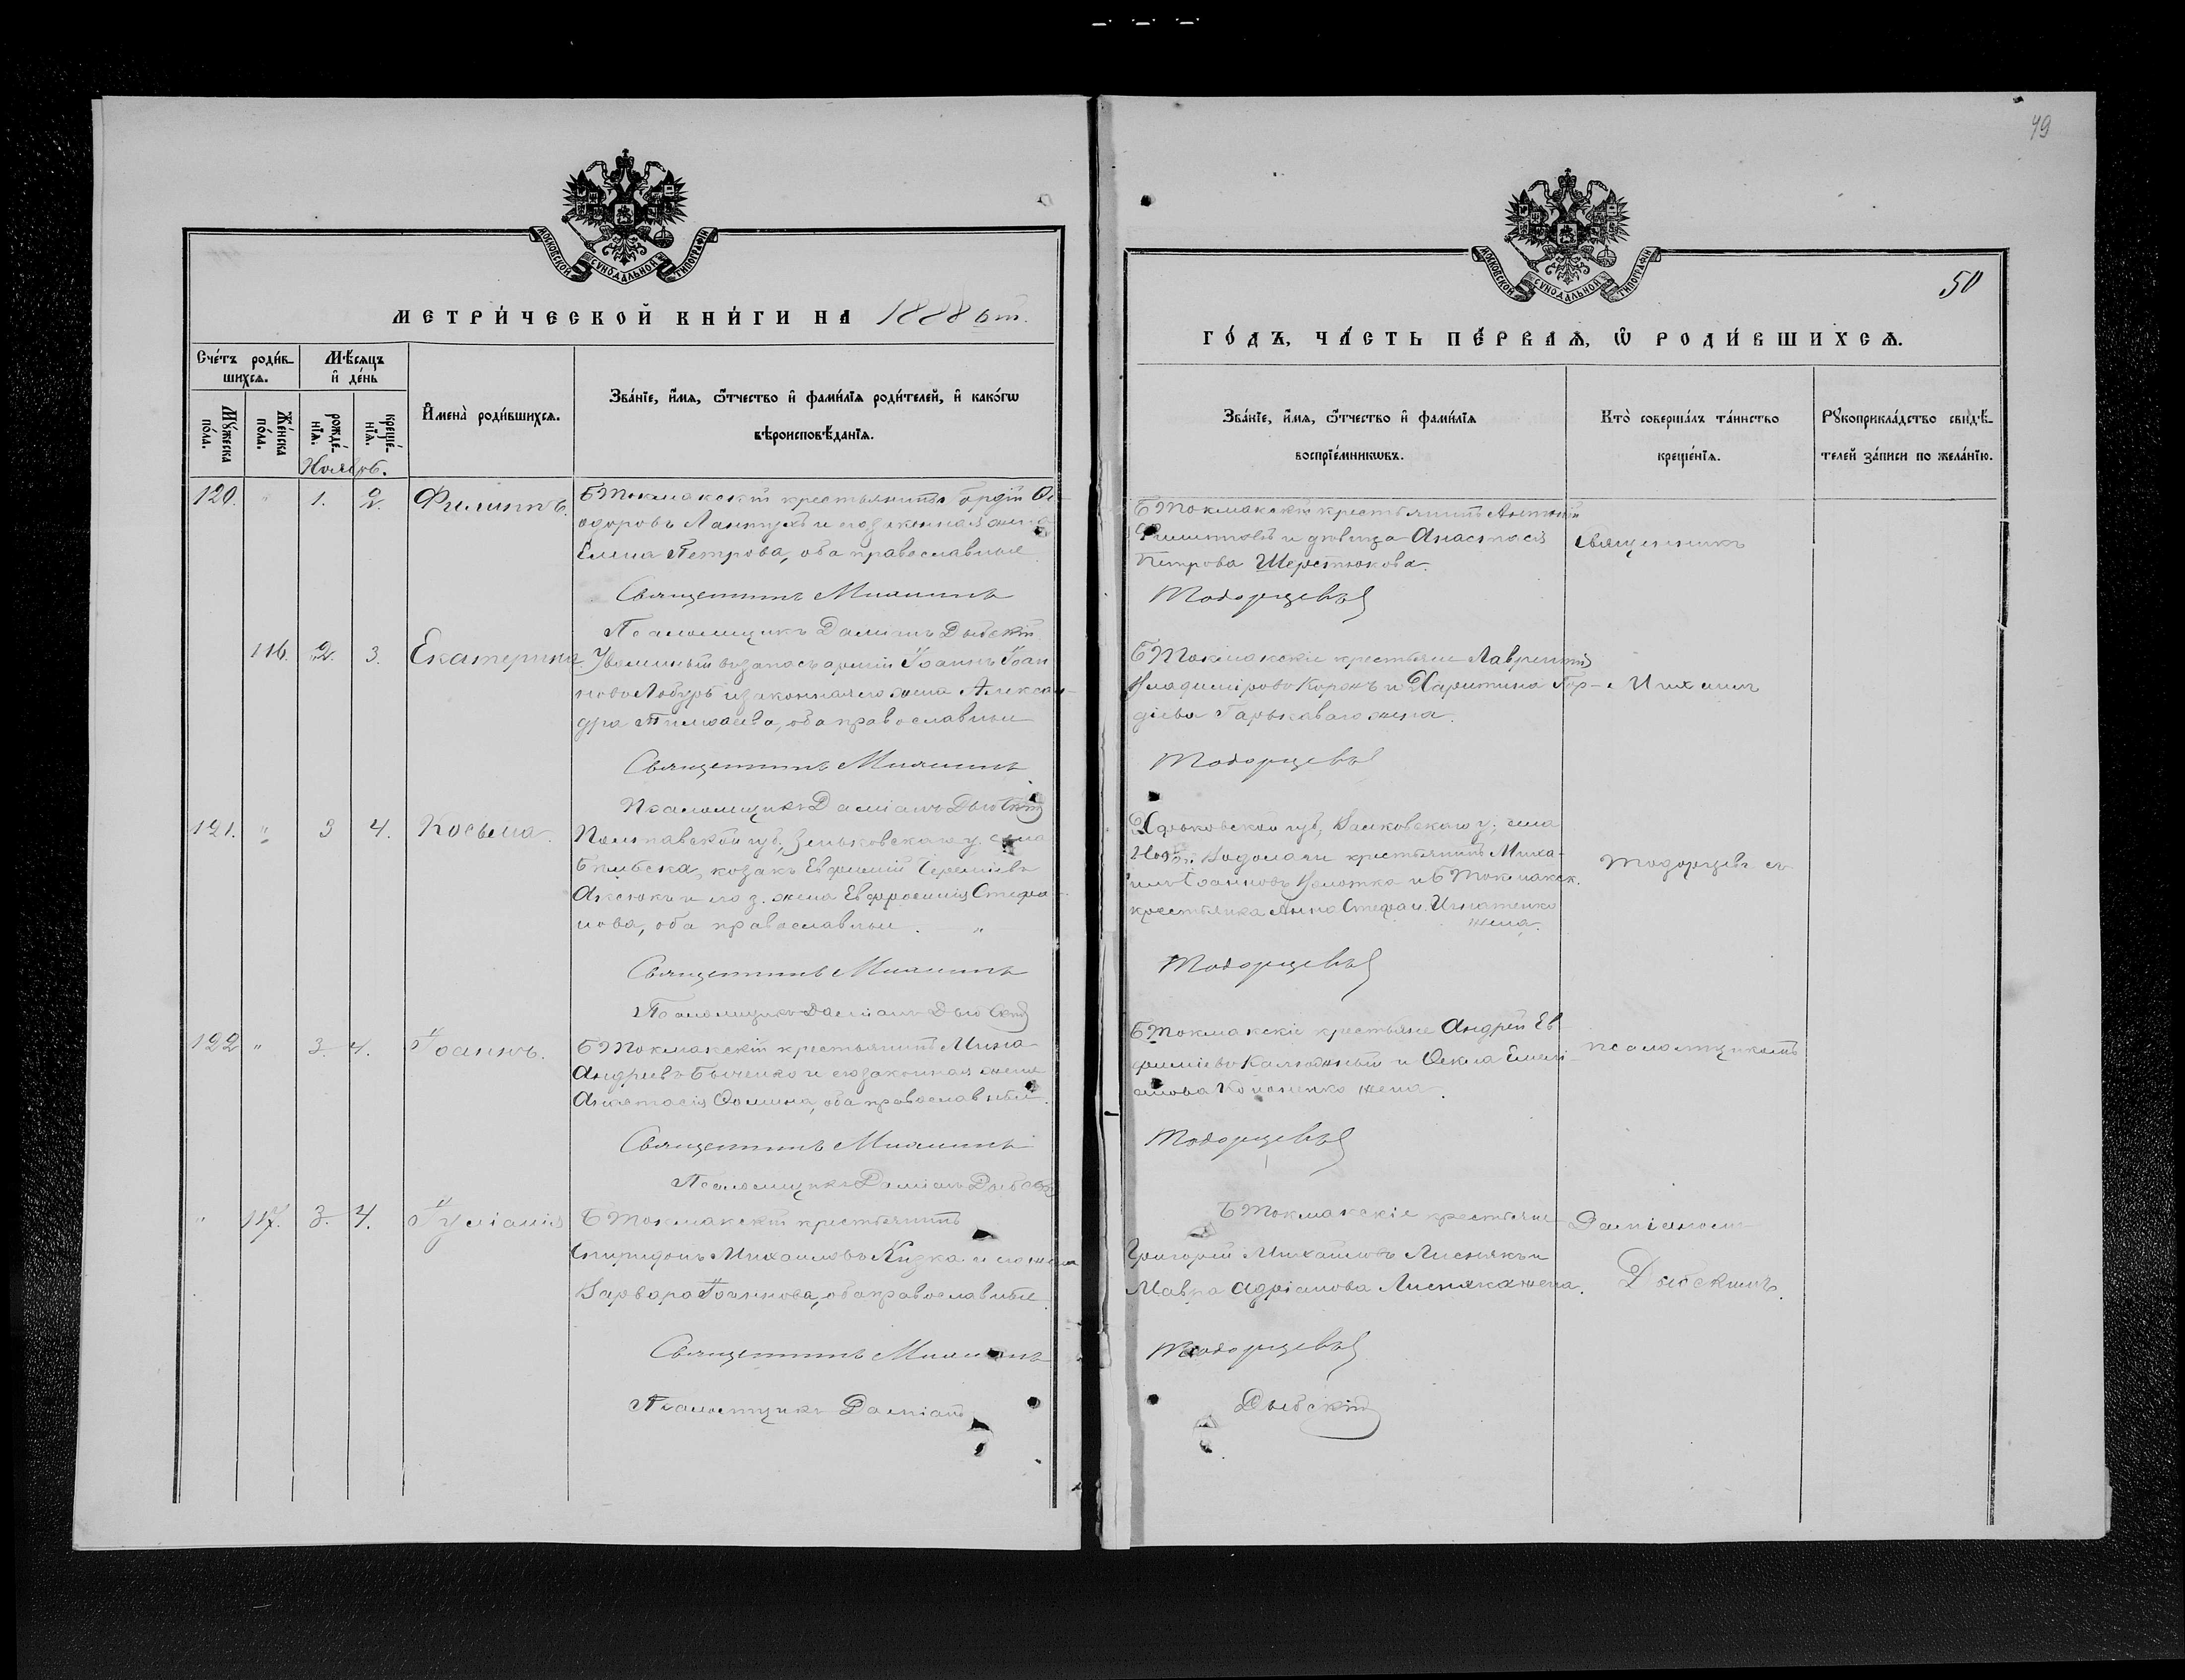 49
МОСКОВСКОЙ СѴНОДАЛЬНОЙ ТИПОГРАФІИ
МЕТРИ́ЧЕСКОЙ КНИ́ГИ НА 1888 ой.
Сче́тъ роди́вшихсѧ.
Мѣ́сѧцъ и҆ де́нь
Мꙋ́жеска по́ла.
Же́нска по́ла.
рожде́нїѧ.
креще́нїѧ.
И҆мена̀ роди́вшихсѧ.
Зва́нїе, и҆́мѧ, ѻ҆́тчество и҆ фами́лїѧ роди́телей, и҆ како́гѡ
вѣроисповѣ́данїѧ.
Ноябрь.
120. " 1. 2. Филиппъ.
Б Токмакскій крестьянинъ Ѳе-
одоровъ Лантухъ и его законная жена
Елена Петрова, оба православные
Священникъ
Псаломщикъ Даміанъ Дыбскій
116. 2. 3. Екатерина
Уволенный въ запасъ арміи Іоаннъ Іоан
новъ и законная его жена Алексан-
дра Тимоѳеева, оба православные
Священникъ
Псаломщикъ Даміанъ Дыбскій
121. " 3 4. Косьма.
Полтавской губ., Зеньковскаго у. села
Бѣльска, козакъ Евфимій
и его з. жена Евфросинія Стефа
нова, оба православные. "
Священникъ
Псаломщикъ Даміанъ Дыбскій
122 " 3. 4. Іоаннъ.
Б Токмакскій крестьянинъ Мина
Андреевъ Быченко и его законная жена
Анастасія Ѳомина, оба православные.
Священникъ
Псаломщикъ Даміанъ Дыбскій
" 117. 3. 4. Іуліанія
Б Токмакскій крестьянинъ
Спиридонъ Михаиловъ Кизка и его жена
Варвара Іоаннова, оба православные
Священникъ
Псаломщикъ Даміанъ
МОСКОВСКОЙ СѴНОДАЛЬНОЙ ТИПОГРАФІИ
50
ГО́ДЪ, ЧА́СТЬ ПЕ́РВАѦ, Ѡ҆ РОДИ́ВШИХСѦ.
Зва́нїе, и҆́мѧ, ѻ҆́тчество и҆ фами́лїѧ
воспрїе́мникѡвъ.
Кто̀ соверша́лъ та́инство
креще́нїѧ.
Рꙋкоприкла́дство свидѣ́-
телей за́писи по жела́нїю.
Б Токмакскій крестьянинъ Антоній
Филипповъ и дѣвица Анастасія
Петрова Шерстюкова.
Священникъ
Тодорцевъ
Б Токмакскіе крестьяне Лаврентій
Владиміровъ Коронъ и Харитина Гор-
діева Гарькаваго жена.
Михаилъ
Тодорцевъ
Харьковской губ., Валковскаго у., села
Водолаги крестьянинъ Миха-
илъ Іоанновъ и Б Токмакск.
крестьянка Анна Стефан. Игнатенко
жена.
Тодорцевъ съ
Тодорцевъ
Б Токмакскіе крестьяне Андрей Ев
фиміевъ Калюжный и Ѳекла Емели-
анова Кононенко жена.
псаломщикомъ
Тодорцевъ
Б Токмакскіе крестьяне
Григорій Михайловъ Лиснякъ и
Мавра Адріанова Лисняка жена.
Даміаномъ
Дыбскимъ.
Тодорцевъ
Дыбскій